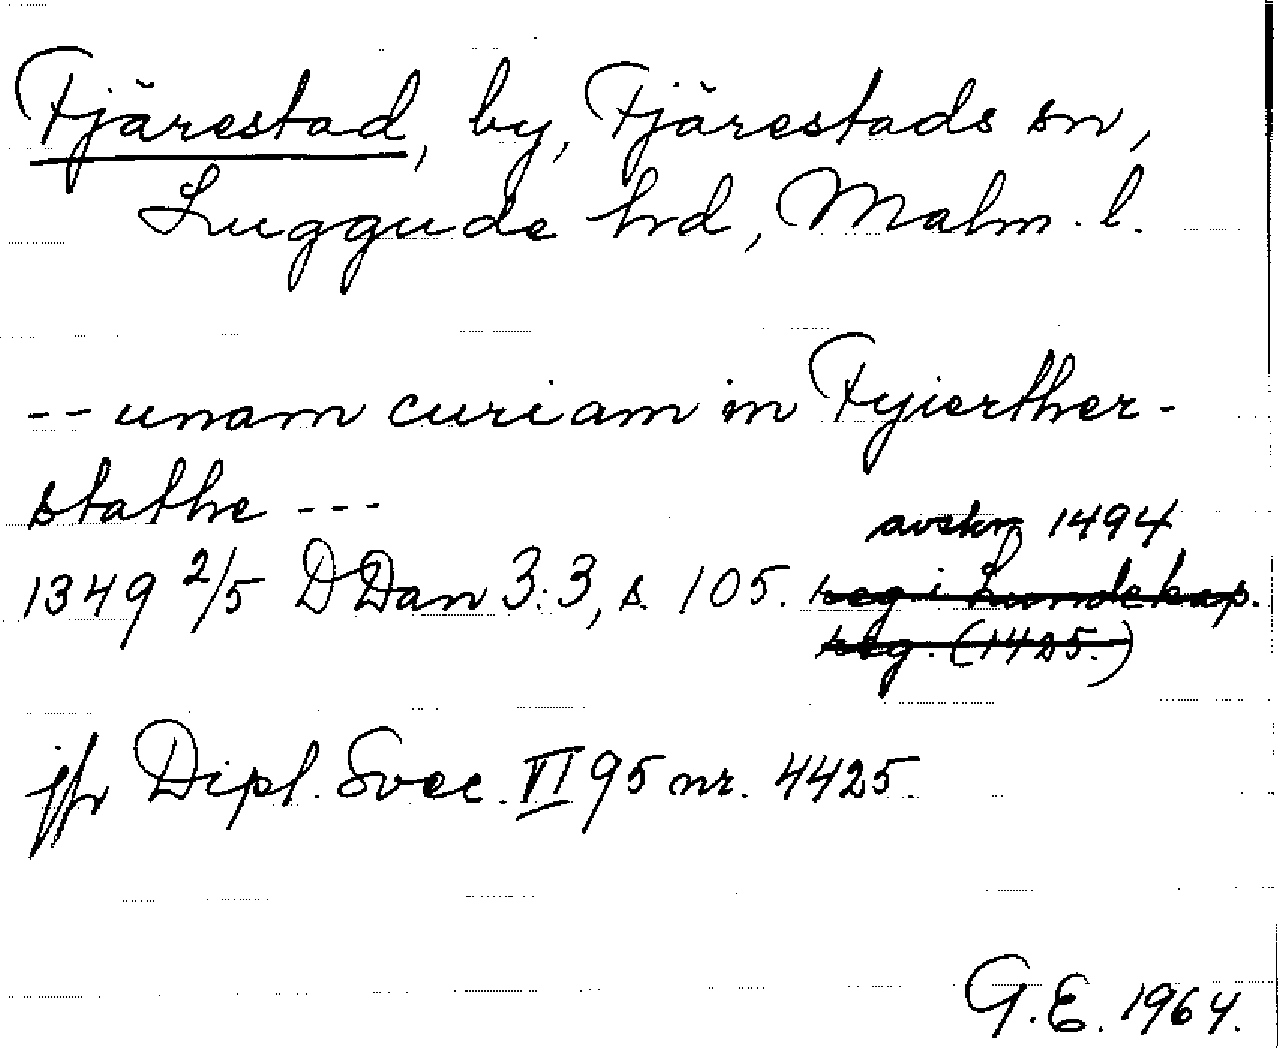 Fjärestad, by, Fjärestads sn,
Luggude hrd, Malm. l.
-- unam curiam in Fyierther-
stathe ---
avskr 1494
1349 2/5 DDan 3:3, s. 105. reg i Lundekap.
reg. (1425.)
jfr Dipl. Svec. VI 95 nr. 4425.
G.E. 1964.